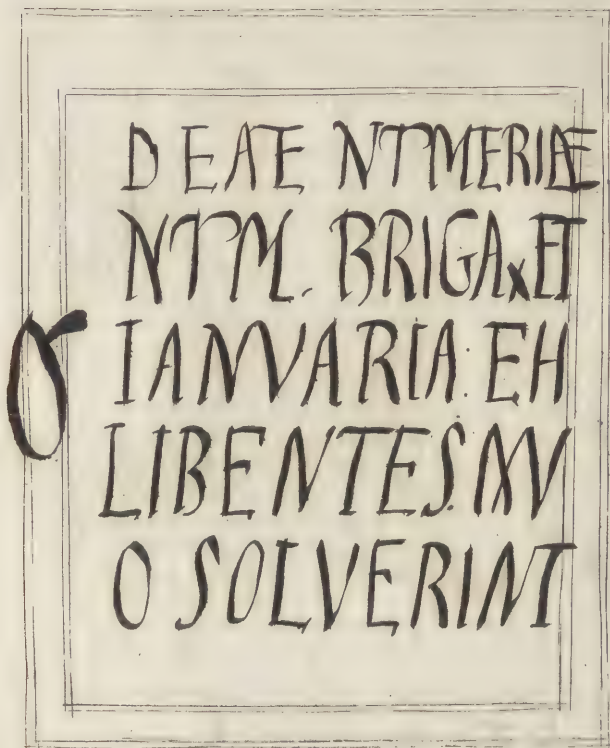 DEATE NTMERIAE
NTM. BRIGAx ET
IANVARIA. EH
LIBENTES.
O SOLVERINT